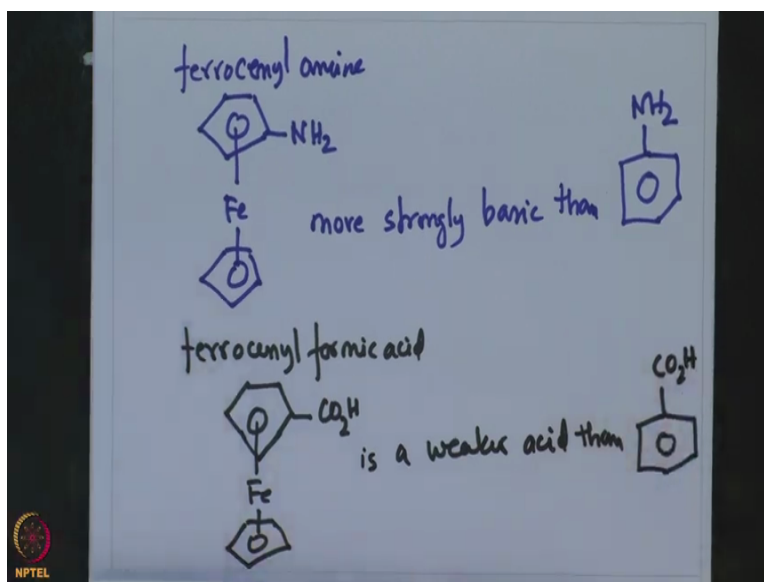 ferrocenyl amine
NH2
NH2
Fe
more strongly basic than
ferrocenyl formic acid
CO2H
CO2H
is a weaker acid than
Fe
NPTEL